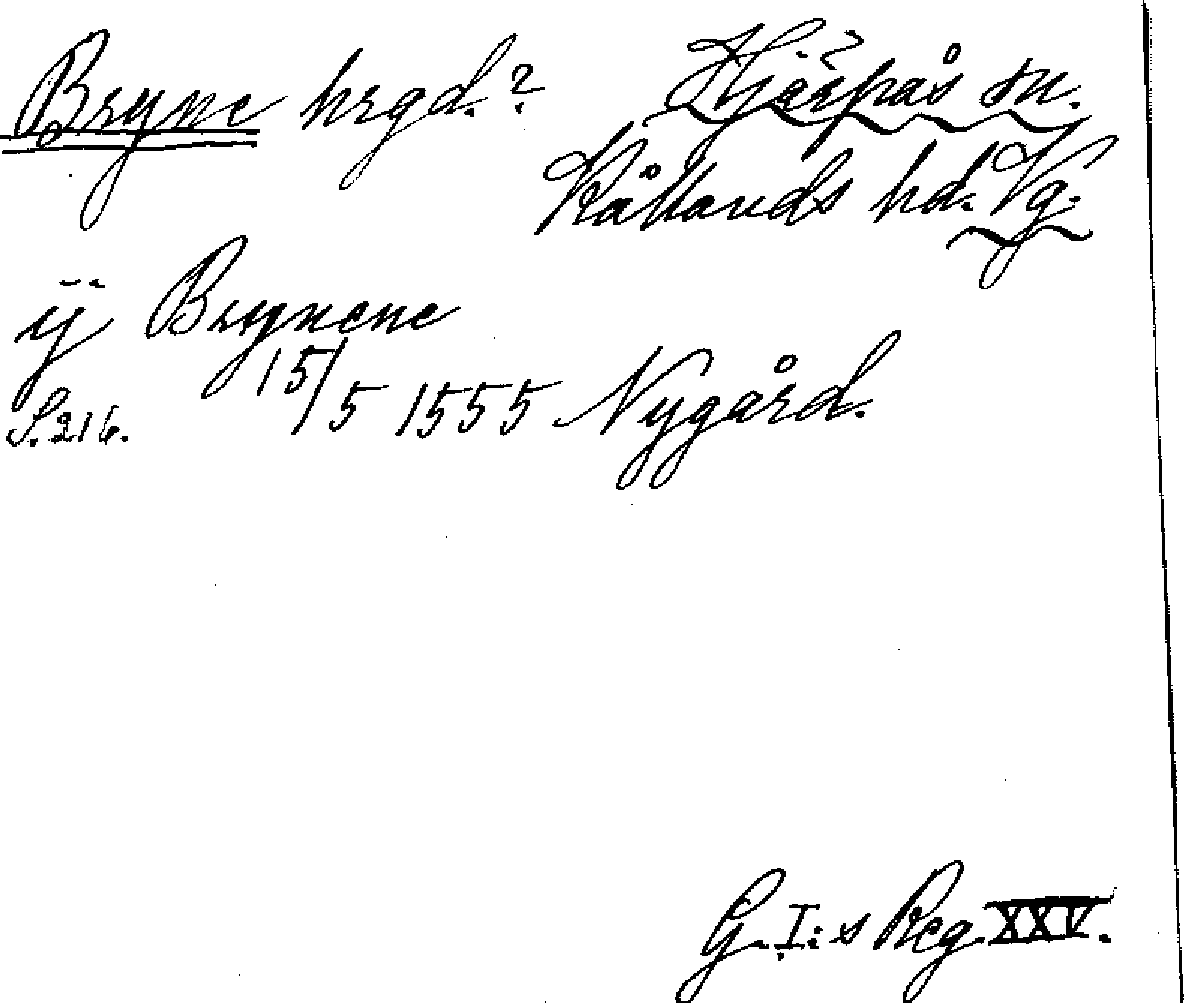 Bryne hrgd.? Hjerpås sn.
Kållands hd. Vg.
ÿ Brynene
S. 216. 15/5 1555 Nygård.
G. I:s Reg. XXV.